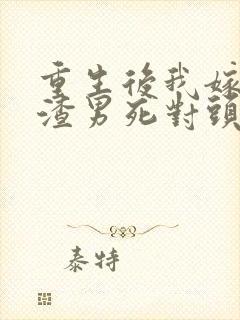 重生後我嫁
渣男死對頭
泰特